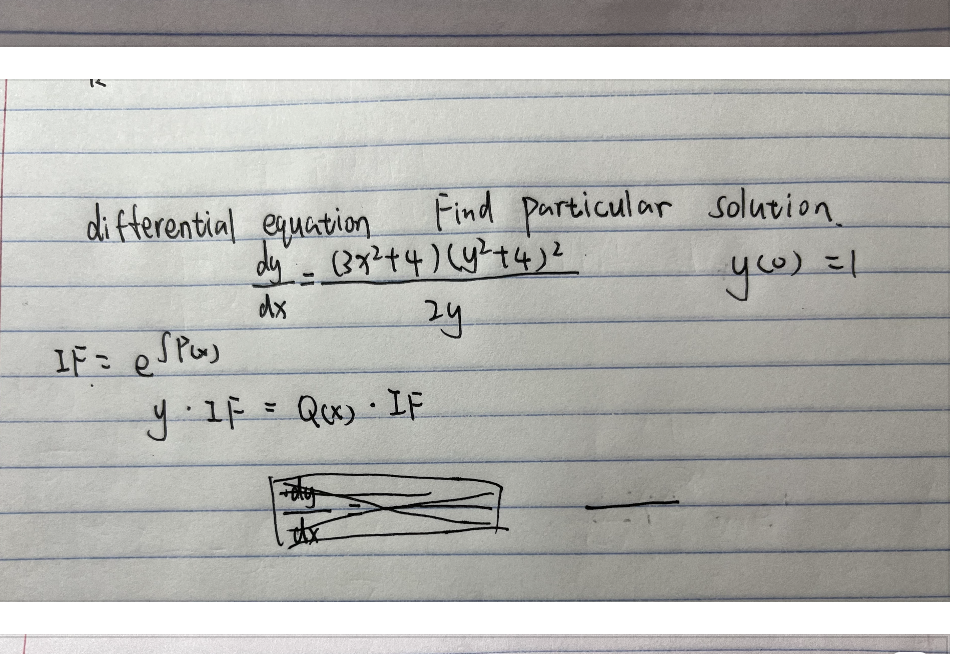 differential equation Find particular solution.
dy/dx = (3x²+4)(y²+4)²/2y y(0) = 1
IF = e^∫P(x)
y · IF = Q(x) · IF
dy/dx =